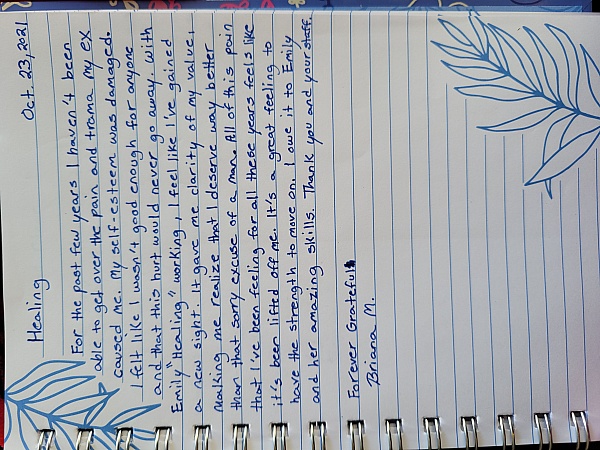 Oct. 23, 2021
Healing
For the past few years I haven't been
able to get over the pain and trama my ex
caused me. My self-esteem was damaged.
I felt like I wasn't good enough for anyone
and that this hurt would never go away. With
Emily "Healing" working, I feel like I've gained
a new sight. It gave me clarity of my value,
making me realize that I deserve way better
than that sorry excuse of a man. All of this pain
that I've been feeling for all these years feels like
it's been lifted off me. It's a great feeling to
have the strength to move on. I owe it to Emily
and her amazing skills. Thank you and your staff.
Forever Grateful
Briana M.